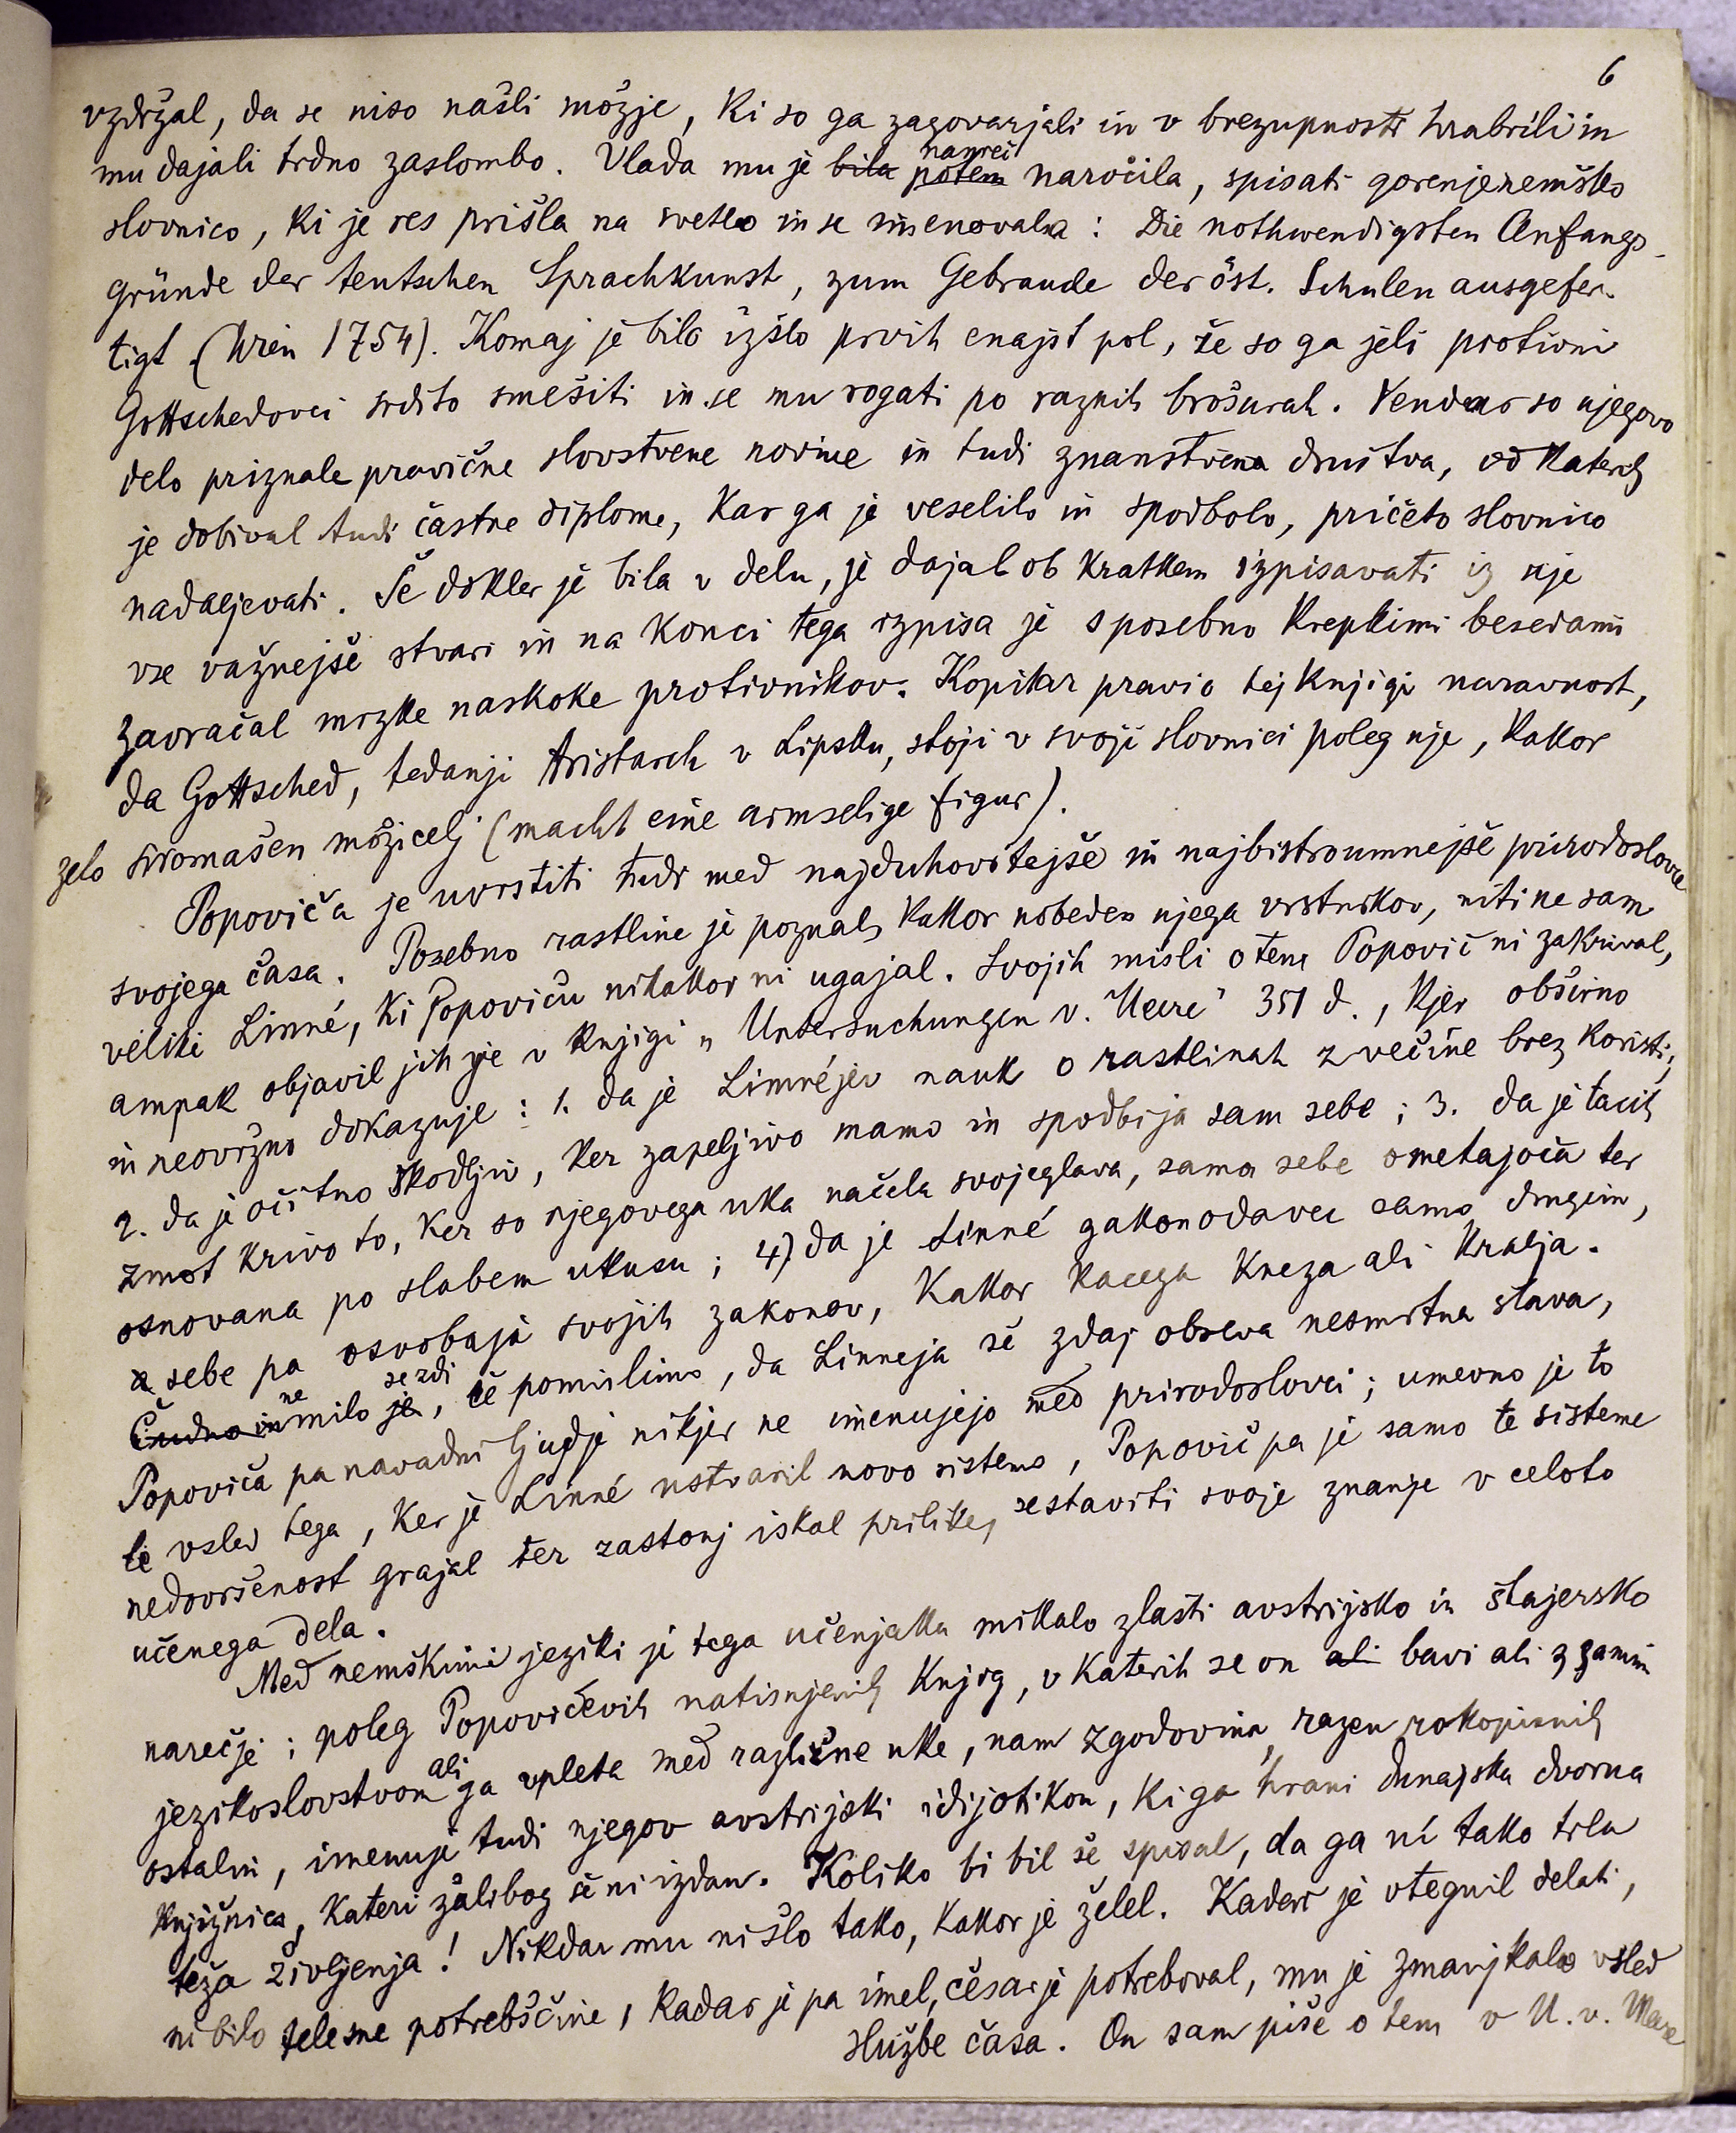 6
vzdržal, da se niso našli možje, ki so ga zagovarjali in v brezupnosti hrabrili in
mu dajali trdno zaslombo. Vlada mu je bila potem namreč naročila, spisati gorenjenemško
slovnico, ki je res prišla na svetlo in se imenovala: Die nothwendigsten Anfangs-
gründe der teutschen Sprachkunst, zum Gebrauche der öst. Schulen ausgefer-
tigt (Wien 1754). Komaj je bilo izšlo prvih enajst pol, že so ga jeli protivni
Gottschedovci srdito smešiti in se mu rogati po raznih brošurah. Vendar so njegovo
delo priznale pravične slovstvene novine in tudi znanstvena društva, od katerih
je dobival tudi častne diplome, kar ga je veselilo in spodbolo, pričeto slovnico
nadaljevati. Še dokler je bila v delu, je dajal ob kratkem izpisavati iz nje
vse važnejše stvari in na konci tega izpisa je s posebno krepkimi besedami
zavračal mrzke naskoke protivnikov. Kopitar pravi o tej knjigi naravnost,
da Gottsched, tedanji Aristarch v Lipsku, stoji v svoji slovnici poleg nje, kakor
zelo siromašen možicelj (macht eine armselige figur).
Popoviča je uvrstiti tudi med najduhovitejše in najbistroumnejše prirodoslovce
svojega časa. Posebno rastline je poznal, kakor nobeden njega vrstnikov, niti ne sam
veliki Linné, ki Popoviču nikakor ni ugajal. Svojih misli o tem Popovič ni zakrival,
ampak objavil jih je v knjigi „Untersuchungen v. Meere" 351 d., kjer obširno
in neovržno dokazuje: 1. da je Linnéjev nauk o rastlinah z večine brez koristi;
2. da je očitno škodljiv, ker zapeljivo mamo in spodbija sam sebe; 3. da je tacih
zmot krivo to, ker so njegovega uka načela svojeglava, sama sebe ometajoča ter
osnovana po slabem ukusu; 4) da je Linné zakonodavec samo drugim,
a sebe pa osvobaja svojih zakonov, kakor kacega kneza ali kralja.
Čudno in ne milo je se zdi, če pomislimo, da Linneja še zdaj obseva nesmrtna slava,
Popoviča pa navadni ljudje nikjer ne imenujejo med prirodoslovci; umevno je to
le vsled tega, ker je Linné ustvaril novo sistemo, Popovič pa je samo te sisteme
nedovršenost grajal ter zastonj iskal prilike, sestaviti svoje znanje v celoto
učenega dela.
Med nemškimi jeziki je tega učenjaka mikalo zlasti avstrijsko in štajersko
narečje; poleg Popovičevih natisnjenih knjig, v katerih se on ali bavi ali z samim
jezikoslovstvom ali ga vpleta med različne uke, nam zgodovina, razen rokopisnih
ostalin, imenuje tudi njegov avstrijski idijotikon, ki ga hrani dunajska dvorna
knjižnica, kateri žalibog še ni izdan. Koliko bi bil še spisal, da ga ni tako trla
teža življenja! Nikdar mu ni šlo tako, kakor je želel. Kadar je utegnil delati,
ni bilo telesne potrebščine, kadar je pa imel, česar je potreboval, mu je zmanjkalo vsled
službe časa. On sam piše o tem v U. v. Meere